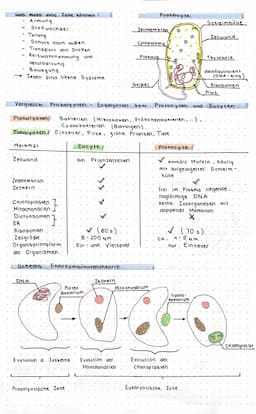 Was muss eine Zelle können?
- Atmung
- Stoffwechsel
- Teilung
- Schutz nach außen
- Transport von Stoffen
- Reizwahrnehmung und
verarbeitung
- Bewegung
→ Zellen sind offene Systeme
Protocyte
Schleimhülle
Zellmembran
Zellwand
Cytoplasma
Plasmid
Thylakoide
(DNA-Ring)
Ribosomen
Geißel
Pilus
Vergleich Prokaryoten - Eukaryoten bzw. Protocyten und Eucyten
Prokaryoten: Bakterien
Cyanobakterien (Blaualgen)
Eukaryoten: Einzeller, Pilze, grüne Pflanzen, Tiere
Merkmal Eucyte Protocyte
Zellwand bei Pflanzenzellen enthält Murein, häufig
mit aufgelagerter Schleim-
hülle
Zellmembran
Zellkern
frei im Plasma liegende,
ringförmige DNA
Chloroplasten
keine Zellorganellen mit
Mitochondrien
doppelter Membran
Dictyosomen
ER
Ribosomen (80 s) (70 s)
Zellgröße
Organisationsform Ein- und Vielzeller nur Einzeller
des Organismen
Schema Endosymbiontentheorie
DNA
Zellkern
Mitochondrium
Cyano-
bakterium
Chloroplast
Evolution d. Zellkerns
Evolution der
Mitochondrien
Evolution der
Chloroplasten
Prokaryotische Zelle
Eukaryotische Zelle